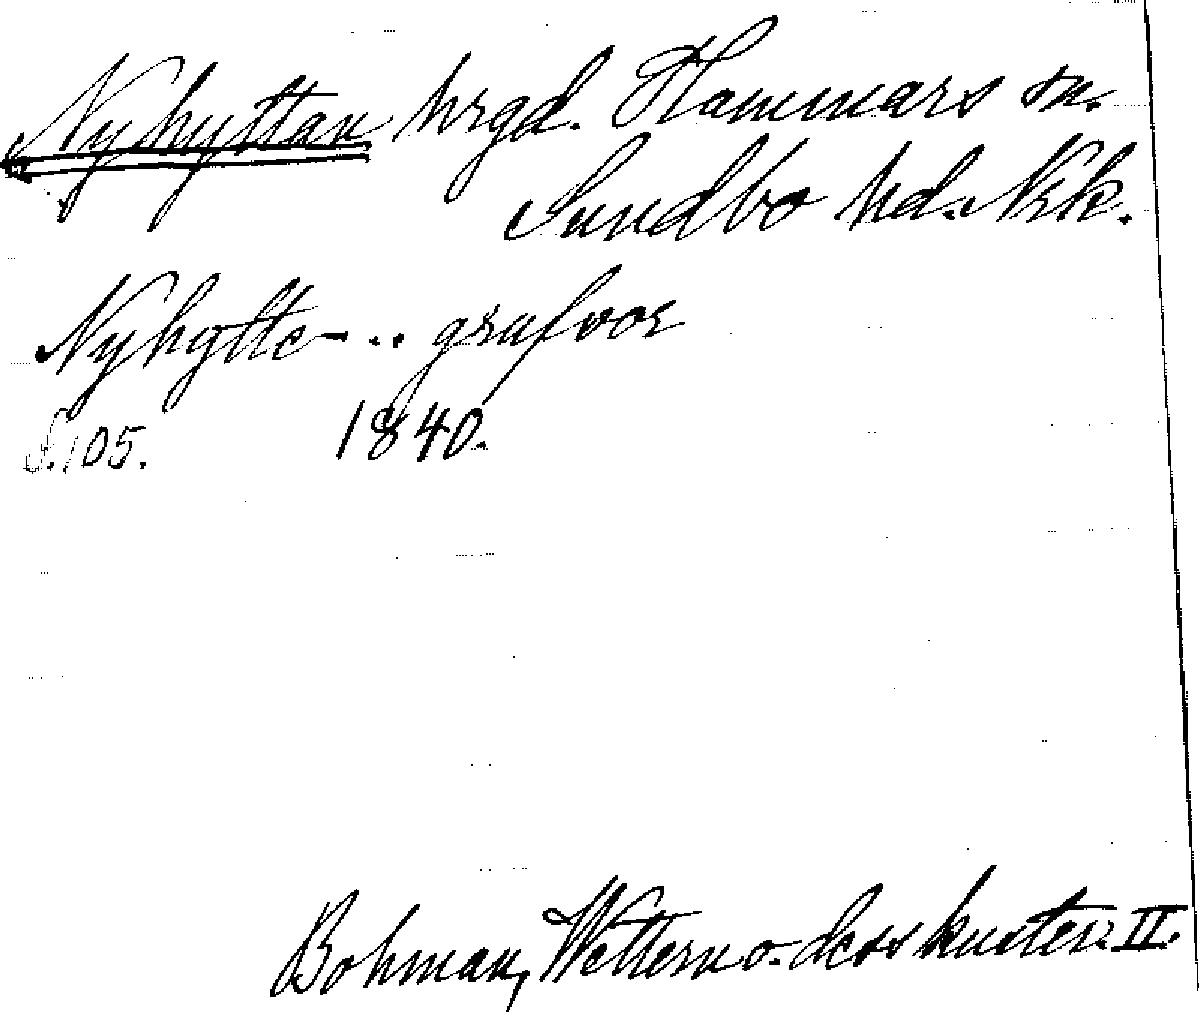 Nyhyttan hrgd. Hammars sn.
Sundbo hd. Nkk.
Nyhytte- .. grufvor
S. 105. 1840.
Bohman, Wettern o. dess kuster. II.